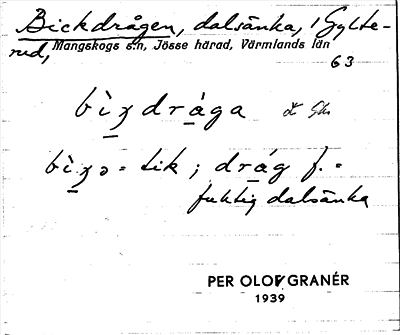 Bickdrågen, dalsänka, i Gylte-
rud, Mangskogs s:n, Jösse härad, Värmlands län
63
bìʒdrága
bìʒə = tik ; dråg f. =
fuktig dalsänka
PER OLOF GRANÉR
1939